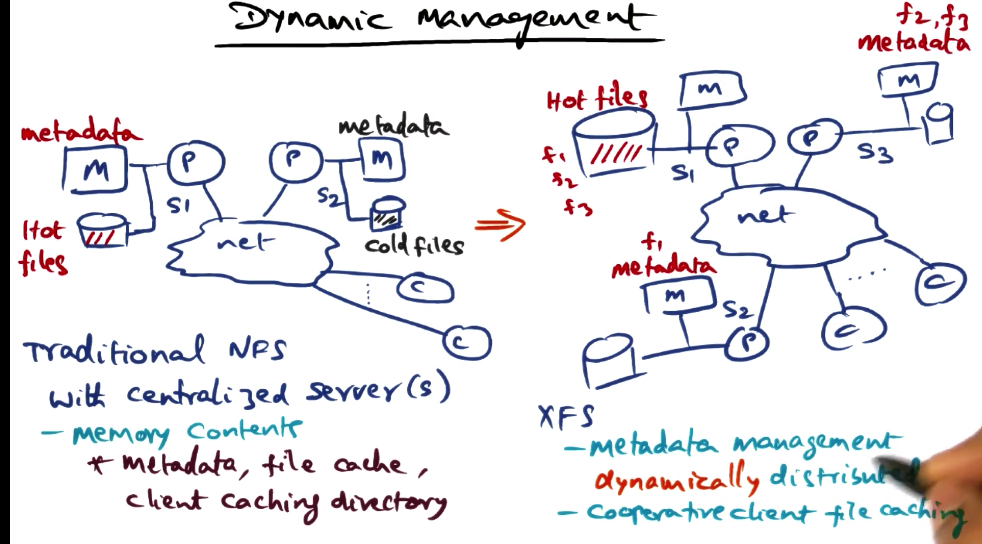 Dynamic management
metadata
M
P
S1
Hot
files
P
metadata
M
S2
cold files
net
C
C
Traditional NFS
with centralized server(s)
- memory contents
* metadata, file cache,
client caching directory
Hot files
f1
f2
f3
M
S1
P
f2, f3
metadata
M
P
S3
net
f1
metadata
M
S2
P
C
C
XFS
- metadata management
dynamically distribut
- cooperative client file caching